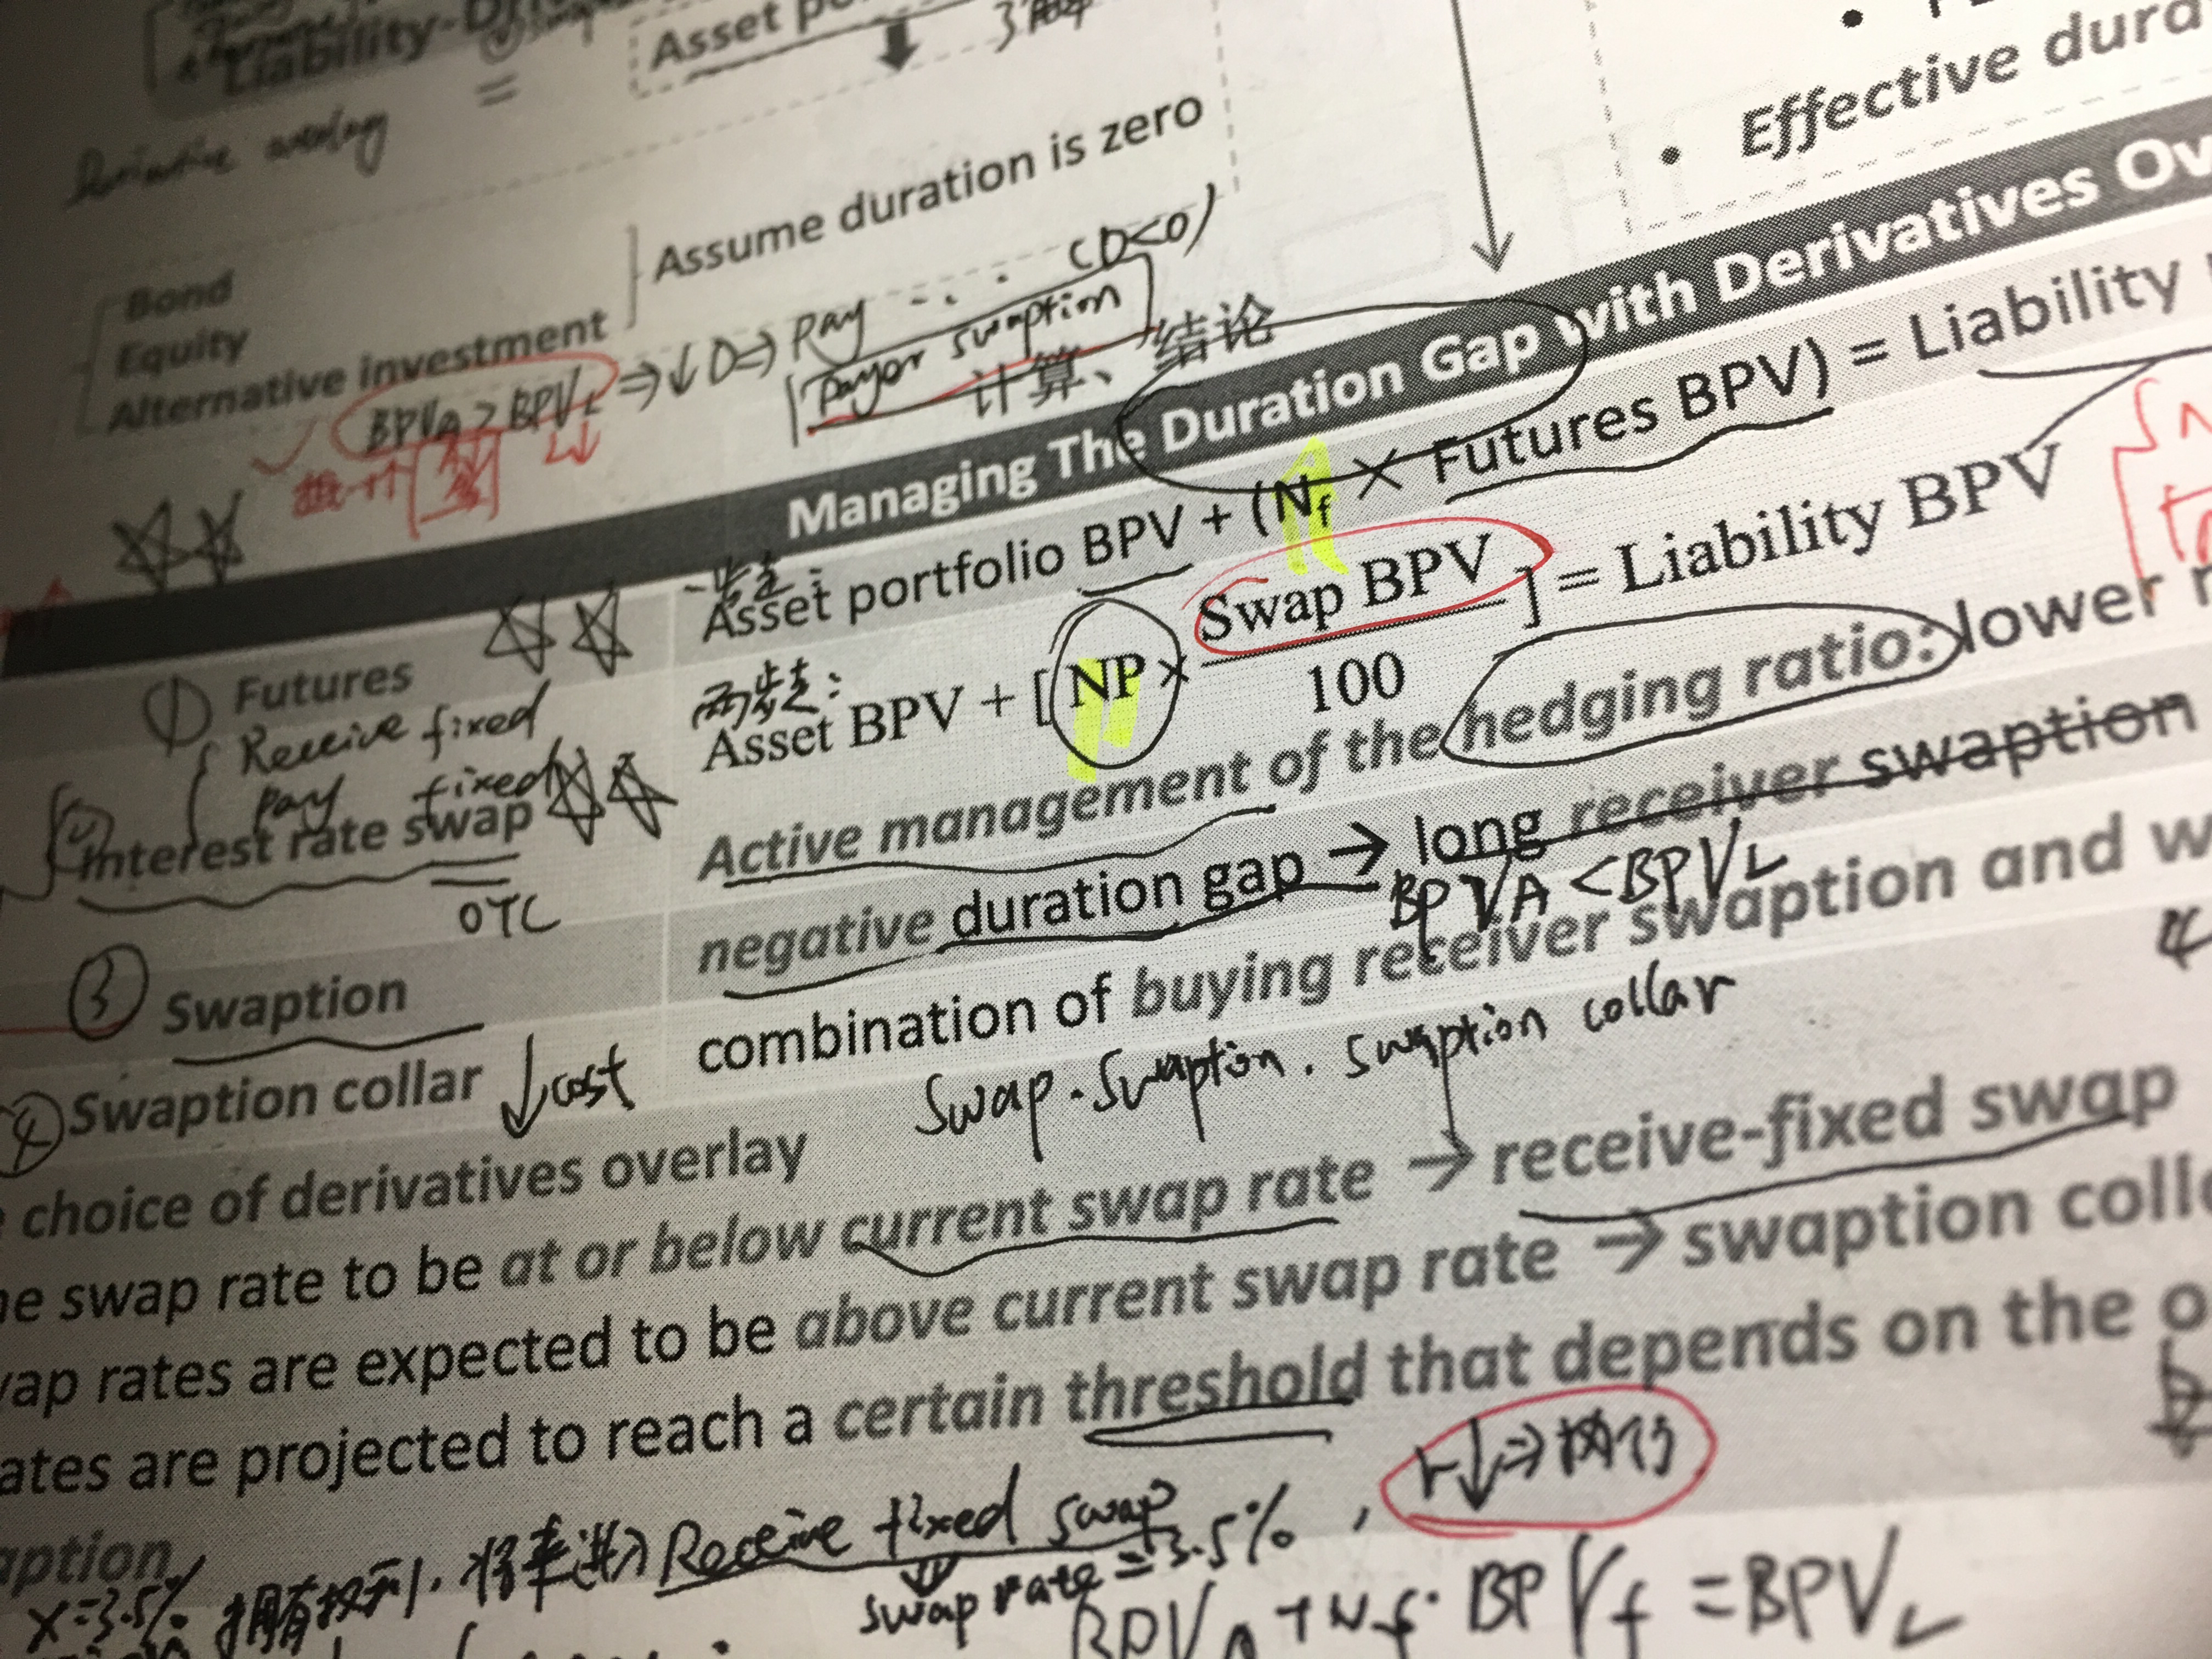 Liability-
Asset po
=
Derivative overlay
Effective dura
Assume duration is zero
Bond
Equity
Alternative investment
BPVA > BPVL ⇒ ↓ D ⇒ Pay ... (D<0)
Payor swaption
计算、结论
Managing The Duration Gap with Derivatives Ov
① Futures
一步走:
Asset portfolio BPV + (Nf × Futures BPV) = Liability
Receive fixed
Pay fixed
Interest rate swap
OTC
两步走:
Asset BPV + [ NP × Swap BPV / 100 ] = Liability BPV
③ Swaption
Active management of the hedging ratio: lower r
negative duration gap → long receiver swaption
BPVA < BPVL
④ Swaption collar ↓ cost
combination of buying receiver swaption and w
Swap. Swaption. Swaption collar
choice of derivatives overlay
he swap rate to be at or below current swap rate → receive-fixed swap
wap rates are expected to be above current swap rate → swaption colla
ates are projected to reach a certain threshold that depends on the o
r↓ ⇒ 执行
aption
X=3.5% 拥有权利, 将来进入 Receive fixed swap
swap rate = 3.5%,
BPVA + Nf · BPVf = BPVL